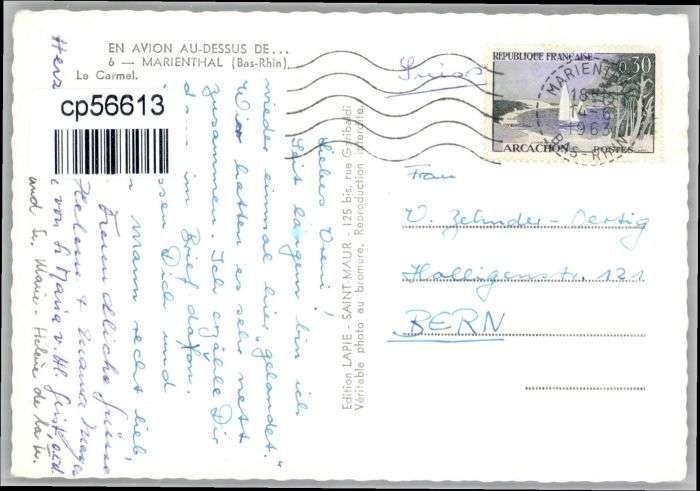 EN AVION AU-DESSUS DE...
6 — MARIENTHAL (Bas-Rhin)
Le Carmel.
cp56613
Suisse
RÉPUBLIQUE FRANÇAISE
0,30
ARCACHON
POSTES
MARIENTHAL
18
1963
BAS-RHIN
Frau
V. Zehnder-Oertig
Halligenstr. 121
BERN
Edition LAPIE - SAINT-MAUR - 125 bis, rue Garibaldi
Véritable photo au bromure. Reproduction interdite.
Liebes Vreni!
Seit langem bin ich
wieder einmal hier „gelandet."
Wir hatten es sehr nett
zusammen. Ich erzähle Dir
im Brief davon.
Dich und
Mann recht lieb
Freundliche Grüsse
Helene & Mama
Herz
von Sr Maria v. Hl. Geist, o.c.d.
und Sr. Marie-Hélène de la Tr.